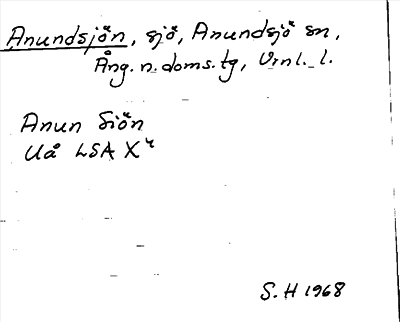 Anundsjön, sjö, Anundsjö sn,
Ång. n. doms. tg, Vrnl. l.
Anun Siön
Uå LSA X⁴
S. H 1968